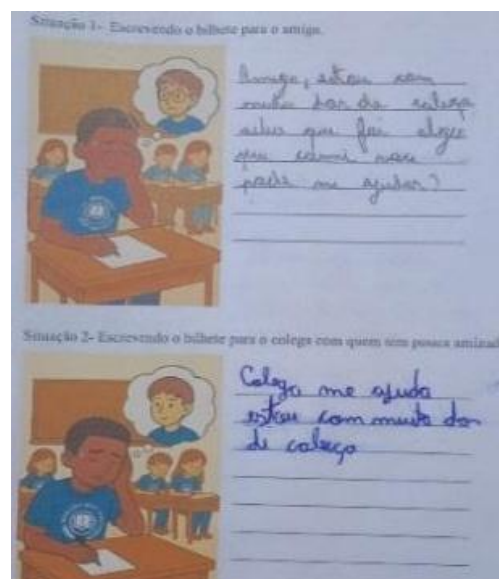 Situação 1- Escrevendo o bilhete para o amigo.
Amigo, estou com
muita dor da cabeça
acho que foi algo
que comi
pode me ajudar?
Situação 2- Escrevendo o bilhete para o colega com quem tem pouca amizad
Colega me ajuda
estou com muita dor
di cabeça